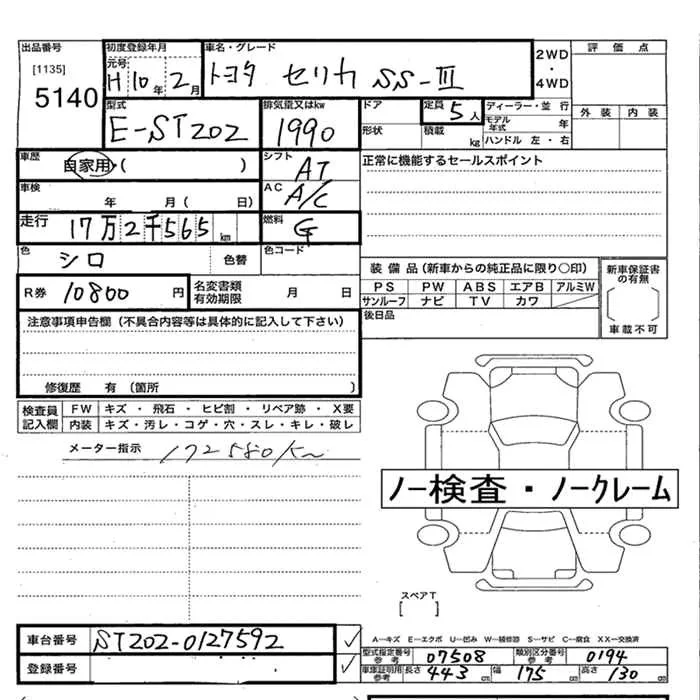 出品番号 初度登録年月 車名・グレード 2WD・4WD 評価点
[1135] 元号 H10年2月 トヨタ セリカ SS-III
5140
型式 排気量又はkw ドア 定員 5人 ディーラー・並行 外装 内装
E-ST202 1990 形状 積載 kg モデル年式 年
ハンドル 左・右
車歴 自家用・( ) シフト AT 正常に機能するセールスポイント
車検 年 月( 日) AC A/C
走行 17万2千565km 燃料 G
色 シロ 色替 色コード
装備品(新車からの純正品に限り○印) 新車保証書の有無
R券 10800円 名変書類有効期限 月 日 PS PW ABS エアB アルミW
サンルーフ ナビ TV カワ
注意事項申告欄(不具合内容等は具体的に記入して下さい) 後日品 車載不可
修復歴 有(箇所 )
検査員記入欄 FW キズ・飛石・ヒビ割・リペア跡・X要
内装 キズ・汚レ・コゲ・穴・スレ・キレ・破レ
メーター指示 172580km
ノー検査・ノークレーム
スペアT
[ ]
車台番号 ST202-0127592 ✓ A―キズ E―エクボ U―凹み W―補修跡 S―サビ C―腐食 XX―交換済
登録番号 ✓ 型式指定番号参考 07508 類別区分番号参考 0194
車庫証明用参考 長さ 443cm 幅 175cm 高さ 130cm